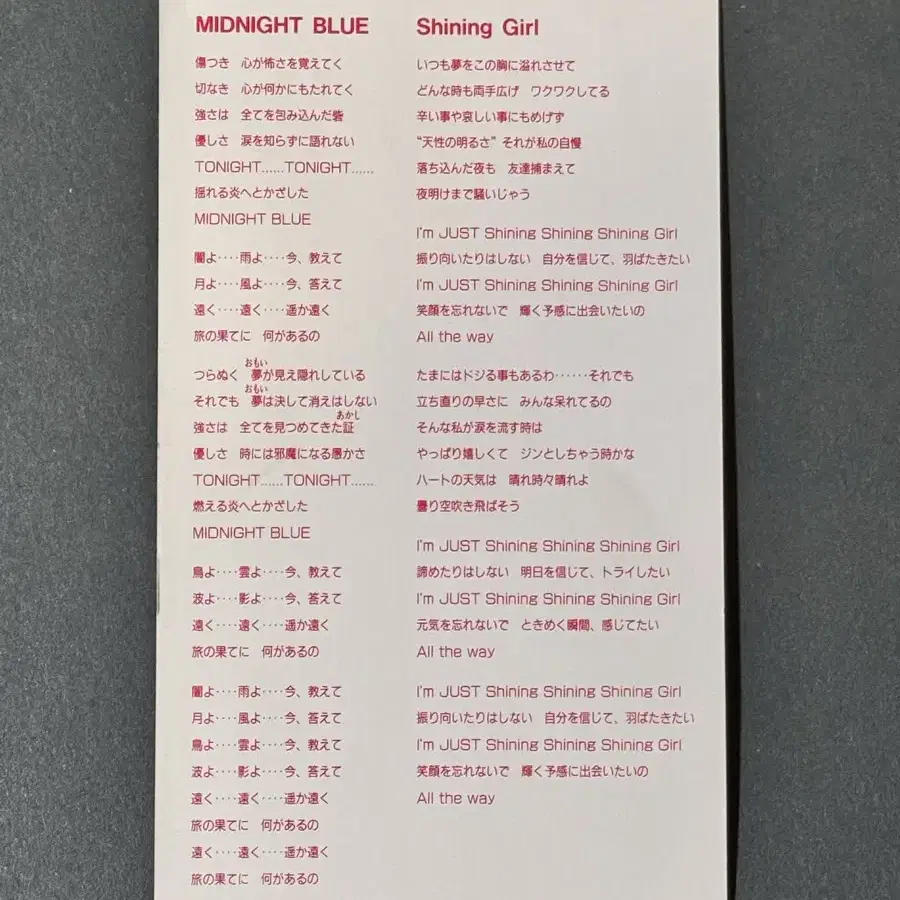 MIDNIGHT BLUE
傷つき 心が怖さを覚えてく
切なき 心が何かにもたれてく
強さは 全てを包み込んだ砦
優しさ 涙を知らずに語れない
TONIGHT......TONIGHT......
揺れる炎へとかざした
MIDNIGHT BLUE
闇よ‥‥雨よ‥‥今、教えて
月よ‥‥風よ‥‥今、答えて
遠く‥‥遠く‥‥遥か遠く
旅の果てに 何があるの
おもい
つらぬく 夢が見え隠れしている
おもい
それでも 夢は決して消えはしない
あかし
強さは 全てを見つめてきた証
優しさ 時には邪魔になる愚かさ
TONIGHT......TONIGHT......
燃える炎へとかざした
MIDNIGHT BLUE
鳥よ‥‥雲よ‥‥今、教えて
波よ‥‥影よ‥‥今、答えて
遠く‥‥遠く‥‥遥か遠く
旅の果てに 何があるの
闇よ‥‥雨よ‥‥今、教えて
月よ‥‥風よ‥‥今、答えて
鳥よ‥‥雲よ‥‥今、教えて
波よ‥‥影よ‥‥今、答えて
遠く‥‥遠く‥‥遥か遠く
旅の果てに 何があるの
遠く‥‥遠く‥‥遥か遠く
旅の果てに 何があるの
Shining Girl
いつも夢をこの胸に溢れさせて
どんな時も両手広げ ワクワクしてる
辛い事や哀しい事にもめげず
“天性の明るさ”それが私の自慢
落ち込んだ夜も 友達捕まえて
夜明けまで騒いじゃう
I'm JUST Shining Shining Shining Girl
振り向いたりはしない 自分を信じて、羽ばたきたい
I'm JUST Shining Shining Shining Girl
笑顔を忘れないで 輝く予感に出会いたいの
All the way
たまにはドジる事もあるわ‥‥‥それでも
立ち直りの早さに みんな呆れてるの
そんな私が涙を流す時は
やっぱり嬉しくて ジンとしちゃう時かな
ハートの天気は 晴れ時々晴れよ
曇り空吹き飛ばそう
I'm JUST Shining Shining Shining Girl
諦めたりはしない 明日を信じて、トライしたい
I'm JUST Shining Shining Shining Girl
元気を忘れないで ときめく瞬間、感じてたい
All the way
I'm JUST Shining Shining Shining Girl
振り向いたりはしない 自分を信じて、羽ばたきたい
I'm JUST Shining Shining Shining Girl
笑顔を忘れないで 輝く予感に出会いたいの
All the way